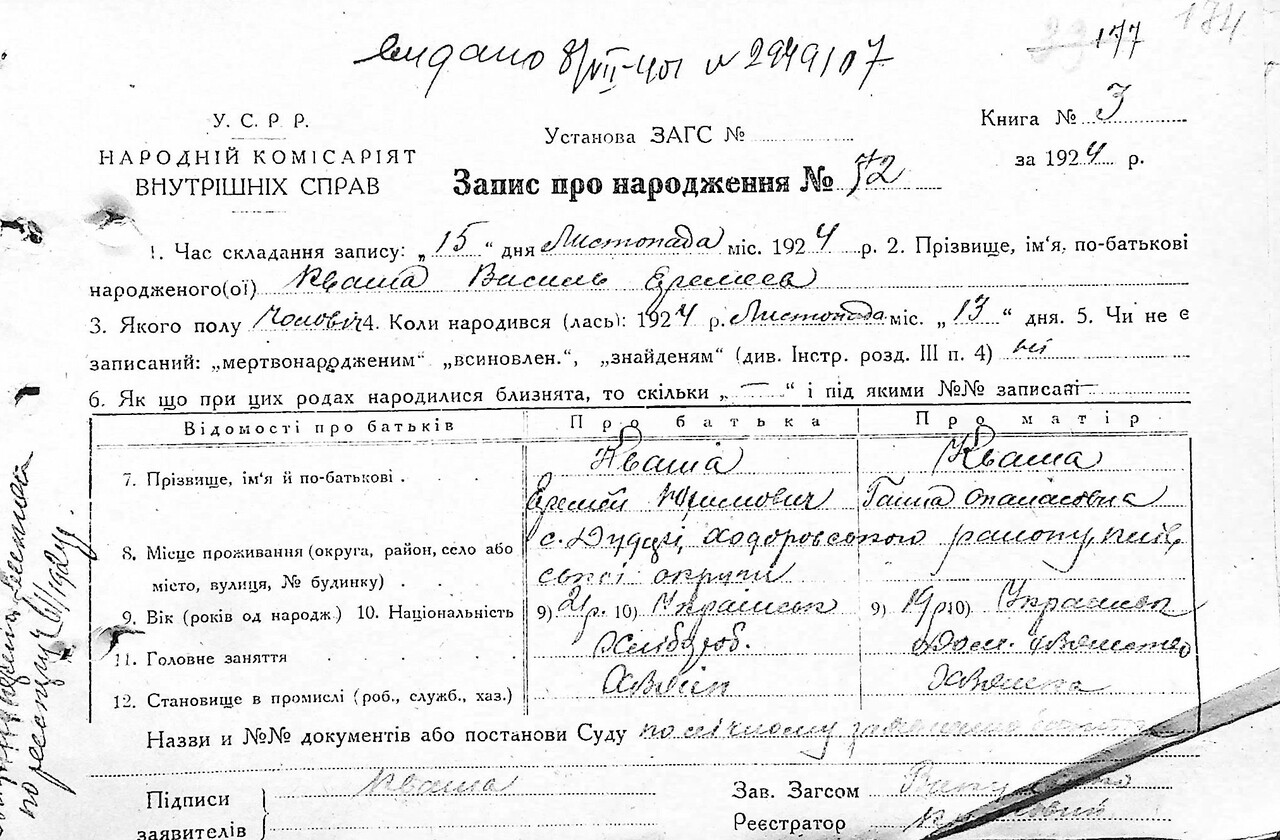 видано 8/VII-40 № 2949/07
177
174
У. С. Р. Р.
НАРОДНІЙ КОМІСАРІЯТ
ВНУТРІШНІХ СПРАВ
Установа ЗАГС №
Книга № 3
за 1924 р.
Запис про народження № 72
1. Час складання запису: „ 15 “ дня Листопада міс. 1924 р. 2. Прізвище, ім'я, по-батькові
народженого(ої) Кваша Василь Еремеев
3. Якого полу Чоловіч 4. Коли народився (лась): 1924 р. Листопада міс. „ 13 “ дня. 5. Чи не є
записаний: „мертвонародженим“ „всиновлен.“, „знайденям“ (див. Інстр. розд. III п. 4) ні
6. Як що при цих родах народилися близнята, то скільки „ — “ і під якими №№ записані —
Відомості про батьків Про батька Про матір
7. Прізвище, ім'я й по-батькові Кваша Кваша
Еремей Юхимович Ганна Опанасовна
8. Місце проживання (округа, район, село або с. Дудци, Ходоровського району, Київ
місто, вулиця, № будинку) ської округи
9. Вік (років од народж.) 10. Національність 9) 21 р. 10) Українськ 9) 19 р. 10) Українськ
11. Головне заняття Хлібороб. Дом.
12. Становище в промислі (роб., служб., хаз.) Хазяїн Хазяйка
Назви и №№ документів або постанови Суду по
Підписи
заявителів
Кваша
Зав. Загсом
Реєстратор